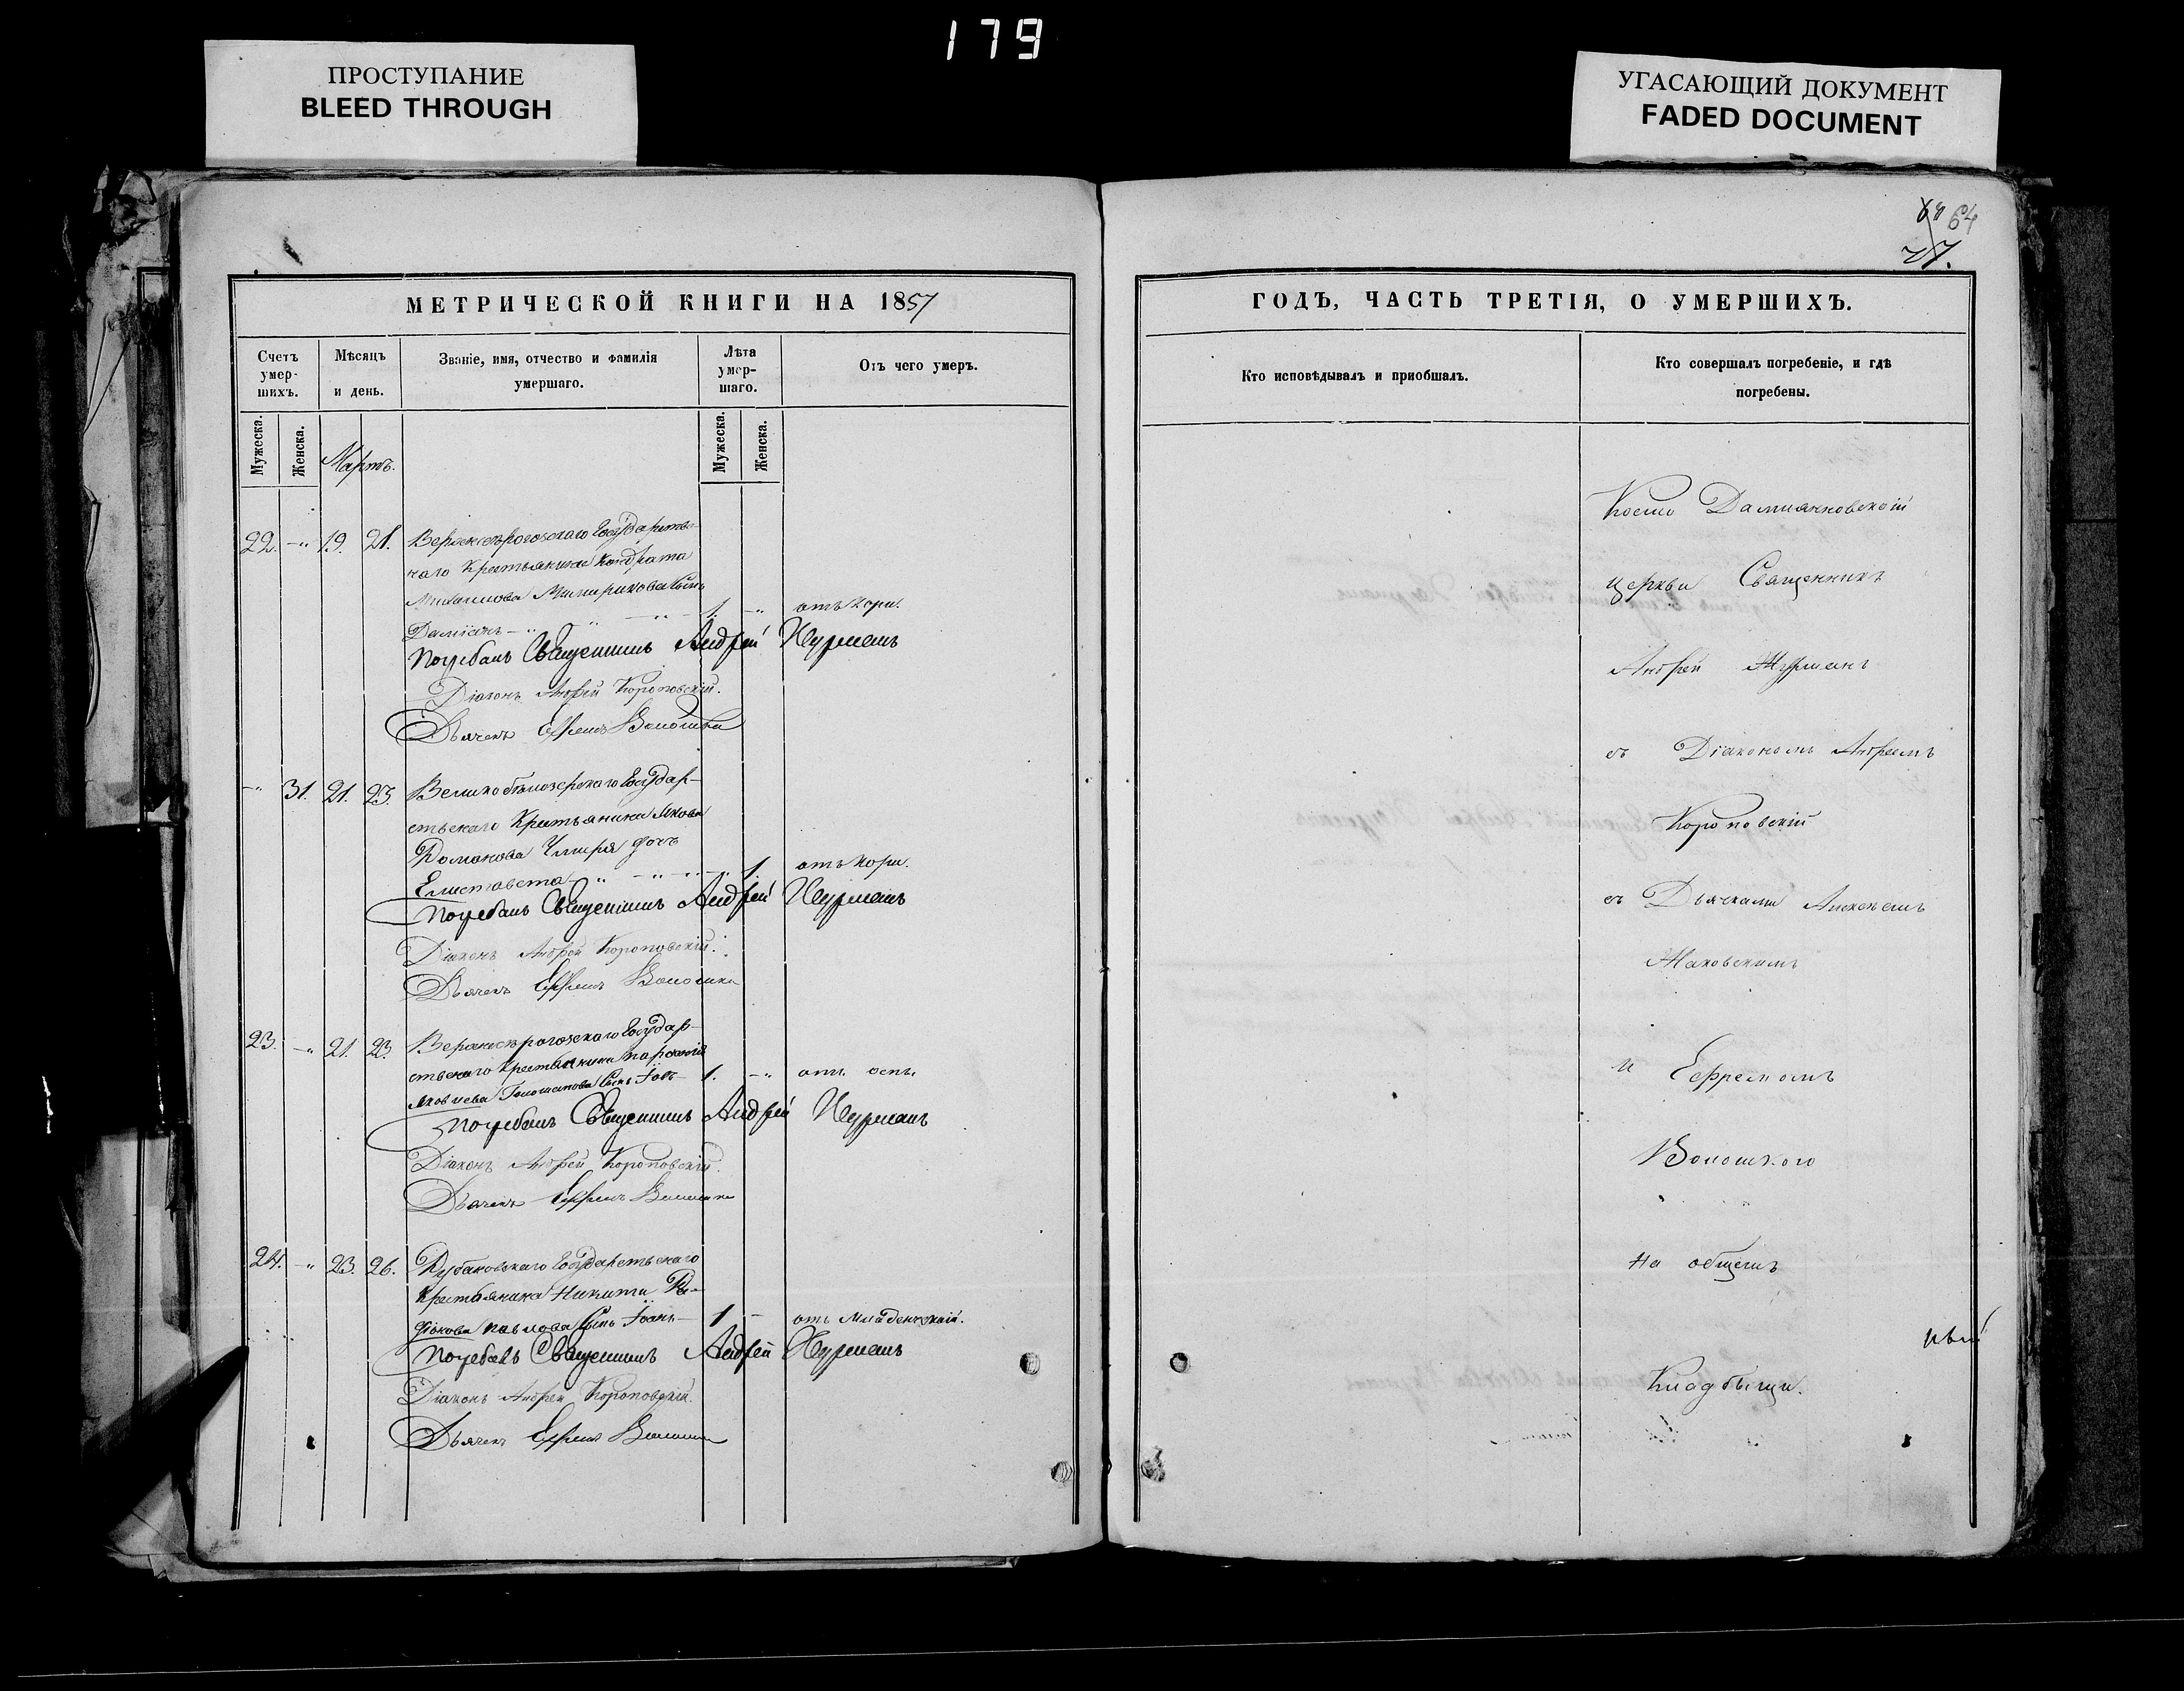 179
ПРОСТУПАНИЕ
BLEED THROUGH
УГАСАЮЩИЙ ДОКУМЕНТ
FADED DOCUMENT
64
МЕТРИЧЕСКОЙ КНИГИ НА 1857
Счетъ умер- шихъ.
Мѣсяцъ и день.
Званіе, имя, отчество и фамилія умершаго.
Лѣта умер- шаго.
Отъ чего умеръ.
Мужеска.
Женска.
Мартъ.
Мужеска.
Женска.
22. -" 19. 21. Верхнерогозскаго Государствен-
наго Крестьянина Кондрата
Михаилова сынъ
Даміанъ -" -" -" 1. -" отъ кори.
Погребалъ Священникъ Андрей Журманъ
Діаконъ Андрей Короповскій.
Дьячекъ Ефремъ Волошка
-" 31. 21. 23. Великобѣлозерскаго Государ-
ственаго Крестьянина Якова
Романова дочь
Елисавета -" -" -" 1. отъ кори.
Погребалъ Священникъ Андрей Журманъ
Діаконъ Андрей Короповскій.
Дьячекъ Ефремъ Волошка
23. -" 21. 23. Верхнерогозскаго Государ-
ственаго Крестьянина
Яковлева сынъ Іовъ - 1. -" отъ оспы
Погребалъ Священникъ Андрей Журманъ
Діаконъ Андрей Короповскій.
Дьячекъ Ефремъ Волошка
24. -" 23. 26. Рубановскаго Государственаго
Крестьянина Никиты Ра-
діонова Павлова сынъ Іоанъ - 1 - отъ младенческой.
Погребалъ Священникъ Андрей Журманъ
Діаконъ Андрей Короповскій.
Дьячекъ Ефремъ Волошка
ГОДЪ, ЧАСТЬ ТРЕТІЯ, О УМЕРШИХЪ.
Кто исповѣдывалъ и приобщалъ.
Кто совершалъ погребеніе, и гдѣ погребены.
Космо Даміановской
церкви Священникъ
Андрей Журманъ
съ Діакономъ Андреемъ
Короповскій
съ Дьячками Алексѣемъ
Маковскимъ
и Ефремомъ
Волошкою
на общемъ
Кладбищи.